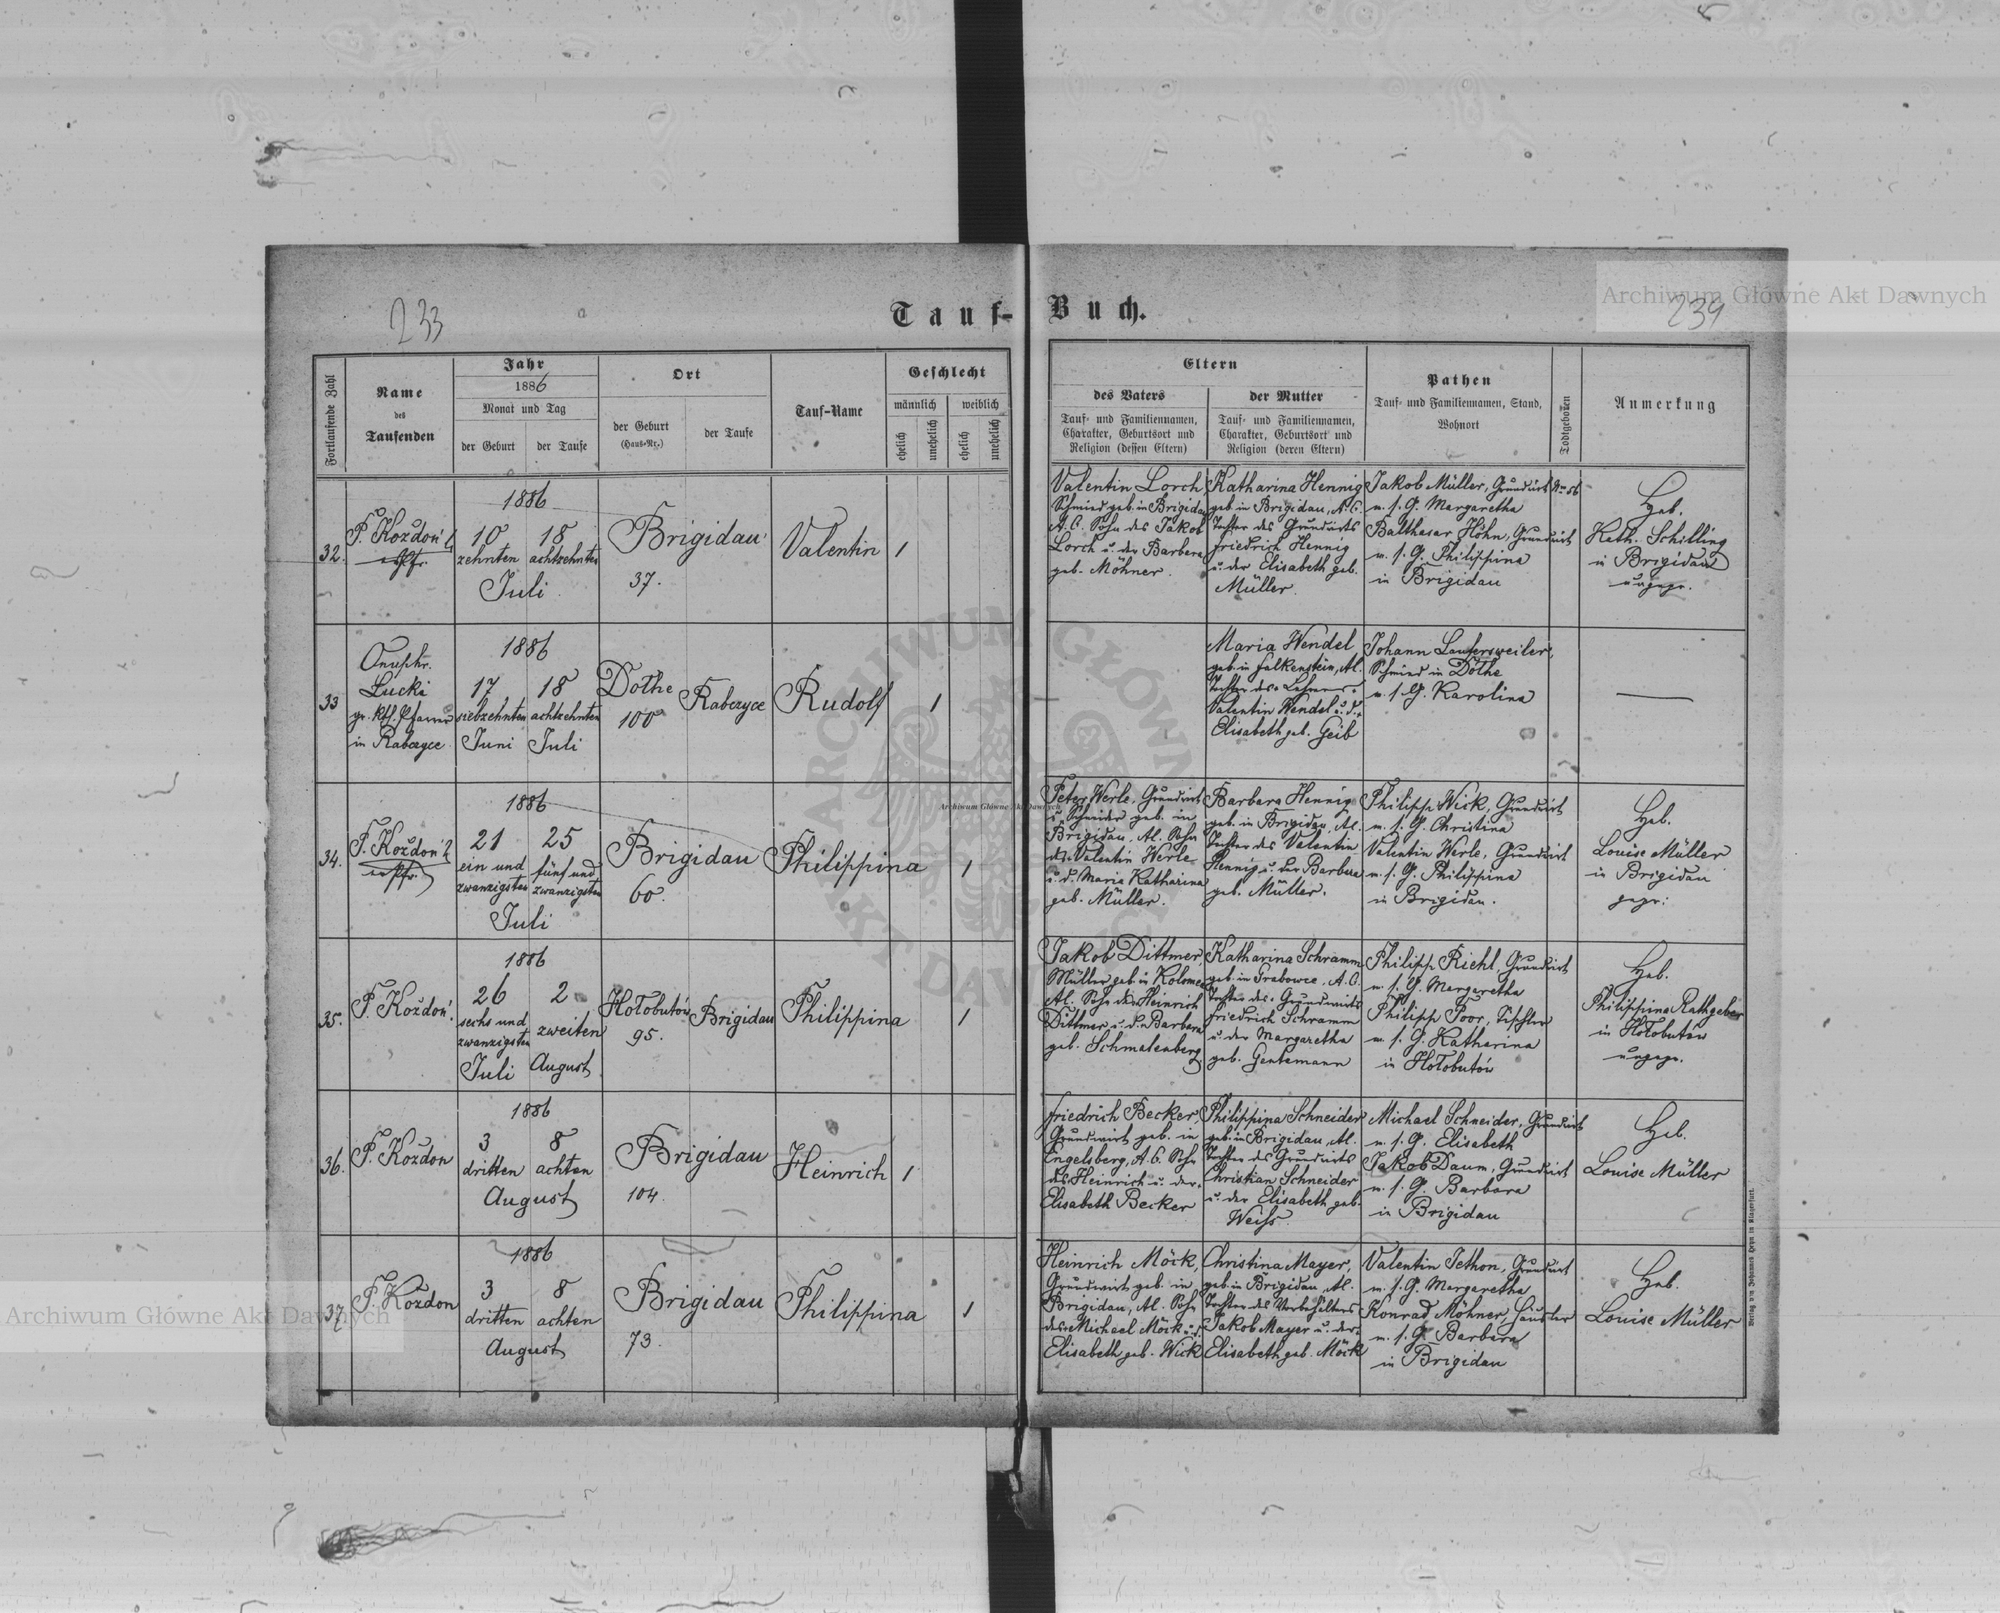 Archiwum Główne Akt Dawnych
233
239
Tauf-Buch.
Fortlaufende Zahl
Name
des
Taufenden
Jahr
1886
Monat und Tag
der Geburt
der Taufe
Ort
der Geburt
(Haus-Nr.)
der Taufe
Tauf-Name
Geschlecht
männlich
weiblich
ehelich
unehelich
ehelich
unehelich
Eltern
des Vaters
Tauf- und Familiennamen,
Charakter, Geburtsort und
Religion (dessen Eltern)
der Mutter
Tauf- und Familiennamen,
Charakter, Geburtsort und
Religion (deren Eltern)
Pathen
Tauf- und Familiennamen, Stand,
Wohnort
Todtgeboren
Anmerkung
32.
F. Kozdoń
1886
10
zehnten
18
achtzehnten
Juli
Brigidau
37.
Valentin
1
Valentin Lorch
Schmied geb. in Brigidau
A.C. Sohn des Jakob
Lorch u. der Barbara
geb. Möhner.
Katharina Hennig
geb. in Brigidau, A.C.
Tochter des Grundwirts
Friedrich Hennig
u. der Elisabeth geb.
Müller.
Jakob Müller, Grundwirt No 56
m. s. G. Margaretha
Balthasar Höhn, Grundwirt
m. s. G. Philippina
in Brigidau
Heb.
Kath. Schilling
in Brigidau
ungepr.
33
Onuphr.
Lucki
gr. kth. Pfarrer
in Rabczyce.
1886
17
siebzehnten
Juni
18
achtzehnten
Juli
Dothe
100
Rabczyce
Rudolf
1
Maria Wendel
geb. in Falkenstein, Al.
Tochter des Lehrers
Valentin Wendel u. d.
Elisabeth geb. Geib
Johann Lautersweiler,
Schmied in Dothe
m. s. G. Karolina
34.
F. Kozdoń
1886
21
ein und
zwanzigsten
25
fünf und
zwanzigsten
Juli
Brigidau
60.
Philippina
1
Peter Werle, Grundwirt
u. Schneider geb. in
Brigidau, Al. Sohn
des Valentin Werle
u. d. Maria Katharina
geb. Müller.
Barbara Hennig
geb. in Brigidau, Al.
Tochter des Valentin
Hennig u. der Barbara
geb. Müller.
Philipp Wick, Grundwirt
m. s. G. Christina
Valentin Werle, Grundwirt
m. s. G. Philippina
in Brigidau.
Heb.
Louise Müller
in Brigidau
gepr.
35.
F. Kozdoń.
1886
26
sechs und
zwanzigsten
Juli
2
zweiten
August
Hołobutów
95.
Brigidau
Philippina
1
Jakob Dittmer
Müller geb. in Kolomea
Al. Sohn des Heinrich
Dittmer u. d. Barbara
geb. Schmalenberg
Katharina Schramm
geb. in Grabowce, A.C.
Tochter des Grundwirts
Friedrich Schramm
u. der Margaretha
geb. Gentemann
Philipp Riehl, Grundwirt
m. s. G. Margaretha
Philipp Poor, Tischler
m. s. G. Katharina
in Hołobutów
Heb.
Philippina Rathgeber
in Hołobutów
ungepr.
36.
F. Kozdon
1886
3
dritten
8
achten
August
Brigidau
104.
Heinrich
1
Friedrich Becker,
Grundwirt geb. in
Engelsberg, A.C. Sohn
des Heinrich u. der
Elisabeth Becker
Philippina Schneider
geb. in Brigidau, Al.
Tochter des Grundwirts
Christian Schneider
u. der Elisabeth geb.
Weiss.
Michael Schneider, Grundwirt
m. s. G. Elisabeth
Jakob Daum, Grundwirt
m. s. G. Barbara
in Brigidau
Heb.
Louise Müller
37
F. Kozdon
1886
3
dritten
8
achten
August
Brigidau
73.
Philippina
1
Heinrich Möck,
Grundwirt geb. in
Brigidau, Al. Sohn
des Michael Möck u. d.
Elisabeth geb. Wick
Christina Mayer,
geb. in Brigidau, Al.
Tochter des Vorbehälters
Jakob Mayer u. der
Elisabeth geb. Möck
Valentin Jethon, Grundwirt
m. s. G. Margaretha
Konrad Möhner, Häusler
m. s. G. Barbara
in Brigidau
Heb.
Louise Müller
Verlag von Johannes Heyn in Klagenfurt.
Archiwum Główne Akt Dawnych
Archiwum Główne Akt Dawnych
ARCHIWUM GŁÓWNE AKT DAWNYCH